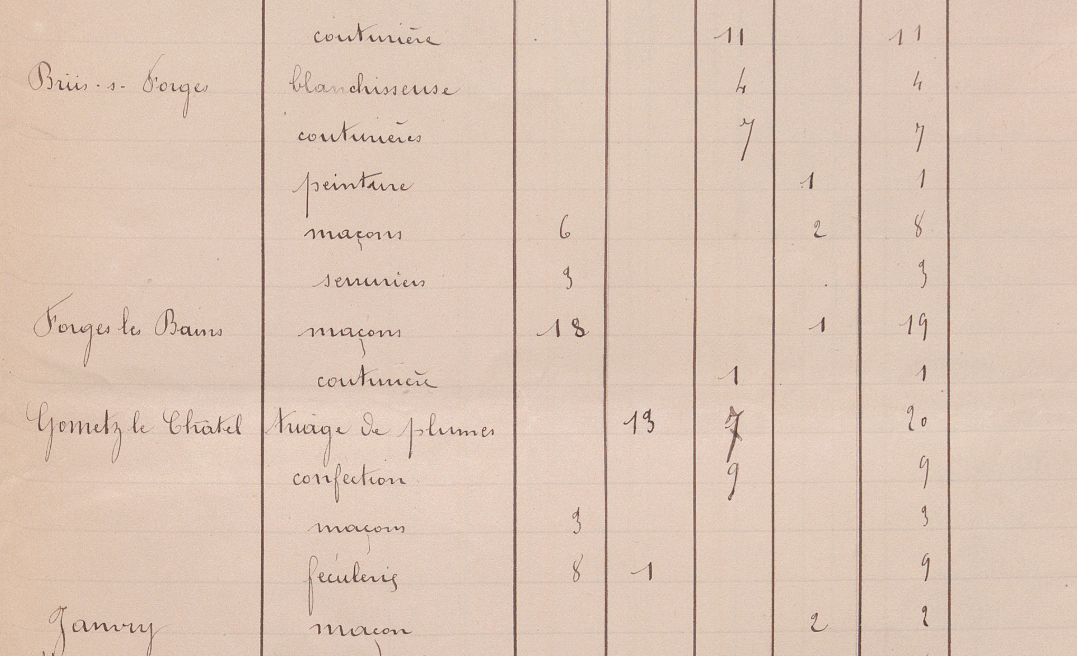 couturière 11 11
Briis-s-Forges blanchisseuse 4 4
couturières 7 7
peinture 1 1
maçons 6 2 8
serruriers 3 3
Forges les Bains maçons 18 1 19
couturière 1 1
Gometz le Châtel triage de plumes 13 7 20
confection 9 9
maçons 3 3
féculerie 8 1 9
Janvry maçon 2 2